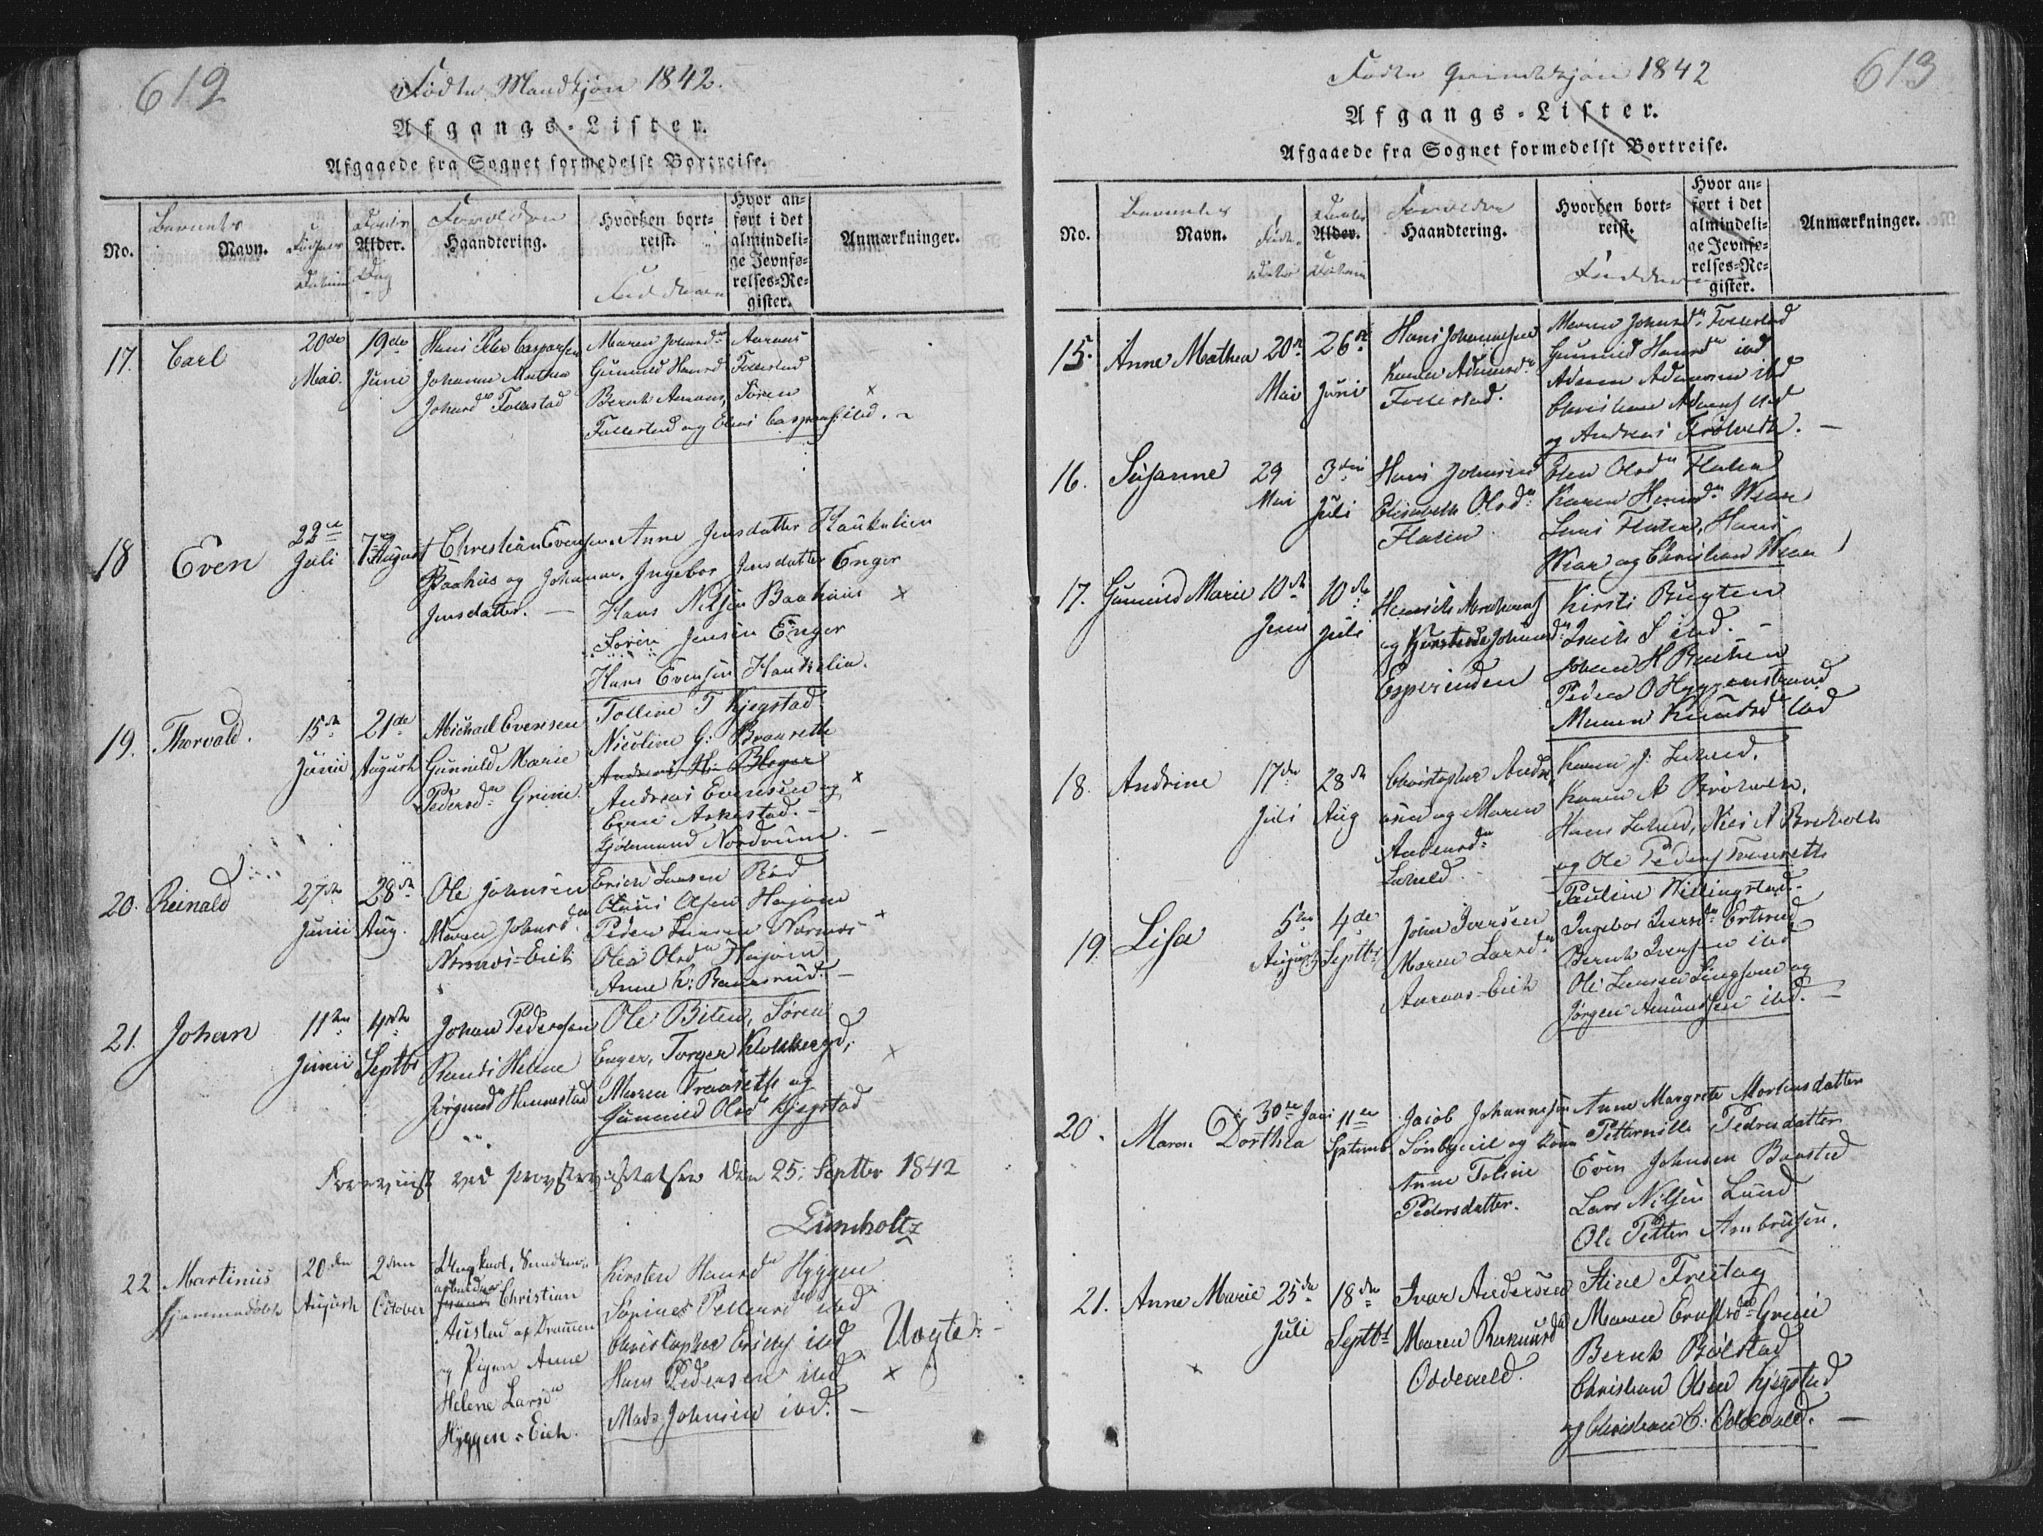 612
Fødte Mandkjøn 1842.
Afgangs-Lister.
Afgaaede fra Sognet formedelst Bortreise.
No.
Barnets
Navn.
Fødsels
Datum
Daabs
Alder.
Dag
Forældre
Haandtering.
Hvorhen bort-
reist.
Fadderne
Hvor an-
ført i det
almindeli-
ge Jevnfø-
relses-Re-
gister.
Anmærkninger.
17. Carl
20de
Mai.
19de
Juni
Hans Peder Caspersen
Johanne Mathea
Johansd. Follestad
Maren Johansdr Aaraas
Gunnild Hansd Follestad
Bernt Aaraas, Søren
Follestad og Elias Caspersen ibd.
18 Even
22de
Juli
7de August
Christian Evensen
Baahus og Johanne
Jensdatter.
Anne Jensdatter Haukelien
Ingebor Jensdatter Enger
Hans Nilsen Baahuus
Søren Jensen Enger
Hans Evensen Haukelien.
19. Thorvald.
15de
Junii
21de
August
Michael Evensen
Gunnild Marie
Pedersdr Grini
Tolline T Kjegstad
Nicoline G: Braareth
Andreas Evensen og
Askestad.
Gudmund Nordrum.
20. Reinald
27de
Junii
28de
Aug.
Ole Johnsen
Maren Johnsdr
Næsnæs-Eich
Erich Larsen Rød
Olaus Olsen Højem
Peder Larsen Nærnæs
Olea Olsdr Højem
Anne K: Ramsrud.
21. Johan
11te
Junii
4de
Septbr
Johan Pedersen
Randi Helene
Jørgensdr Hannestad
Ole Biten, Søren
Enger, Torger Klokkergd,
Maren Traaseth og
Gunnild Olsdr Kjegstad
Foreviist ved Provstevisitatsen den 25. Septbr 1842
Lumholtz
22 Martinus
hjemmedøbt
20de
August
2den
October
Ungkarl,
arbeider
Christian
Austad af Dramen
og Pigen Anne
Helene Larsdr
Hyggen-Eich.
Kirsten Hansdr Hyggen
Sørine Pettersdr ibd
Christopher ibd
Hans Pedersen ibd
Mads Johnsen ibd.
Uægte
613
Fødte Qvindekjøn 1842
Afgangs-Lister.
Afgaaede fra Sognet formedelst Bortreise.
No.
Barnets
Navn.
Føds.
Datum
Daabs
Alder.
Datum
Forældre
Haandtering.
Hvorhen bort-
reist.
Fadderne
Hvor an-
ført i det
almindeli-
ge Jevnfø-
relses-Re-
gister.
Anmærkninger.
15. Anne Mathea
20de
Mai
26de
Juni
Hans Johannesen
Karen Adamsdr
Follestad.
Maren Johnsdr Follestad
Gunnild Hansdr ibd
Adam Adamsen ibd
Christian Adams ibd
og Andreas Frølseth.
16. Susanne
29
Mai
3die
Juli
Hans Johnsen
Elisabeth Olsdr
Flaten
Elen Olsdr Flaten
Karen Hansdr Wear
Lars Flaten, Hans
Wear og Christian Wear
17. Gunnild Marie
10de
Junii
10de
Juli
Henrich Abrahams
og Kjerstine Johansdr
Esperinden
Kirsti Bugten
S ibd.
Johan H
Peder O Hyggenstrand
Maren Knudsdr ibd
18. Andrine
17de
Juli
28de
Aug
Christopher Andr
og Maren
Andersdr
Karen J.
Karen A
Hans
og Ole Peders Traaseth
19. Lisa
5te
August
4de
Septbr
John Iversen
Maren Larsdr
Aaraas-Eich
Pauline Killingstad.
Ingebor Iversdr Ertsrud
Bernt Iversen ibd
Ole Larsen Lingsom og
Jørgen Amundsen ibd.
20. Maren Dorthea
30te Juni
11te
Septemb
Jacob Johannesen
Sønbyeie og Kone
Anne Toline
Pedersdatter.
Anne Margrete Mortensdatter
Petternille Pedersdatter
Even Johnsen Baastad
Lars Nilsen Lund
Ole Petter Ambrosen.
21. Anne Marie
25de
Juli
18de
Septbr
Ivar Andersen
Maren Rasmusdr
Oddevald.
Stine Freitag
Maren Grini
Bernt Bølstad
Christian Olsen Kjegstad
og Christian C: Oddevald.